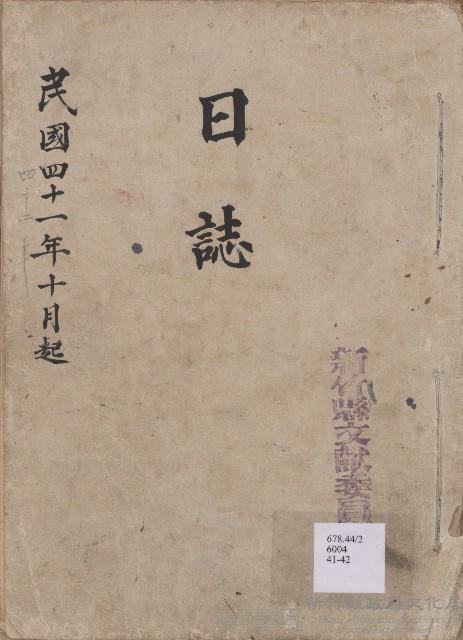 新竹縣文獻委員
日誌
民國四十一年十月起
678.44/2
6004
41-42
新竹縣政府文化局